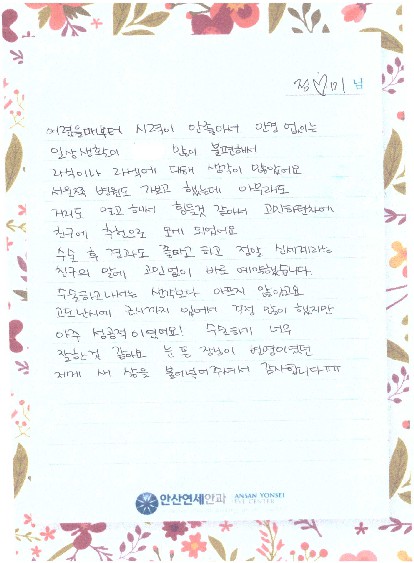 정♡미 님
어렸을때부터 시력이 안좋아서 안경 없이는
일상생활이 많이 불편해서
라식이나 라섹에 대해 생각이 많았어요
서울쪽 병원도 가보고 했는데 아무래도
거리도 멀고 해서 힘들것 같아서 고민하던차에
친구에 추천으로 오게 되었어요
수술 후 결과도 좋다고 하고 정말 신세계라는
친구의 말에 고민없이 바로 예약했습니다
수술하고 나서는 생각보다 아프지 않았고요
고도난시에 근시까지 있어서 걱정 많이 했지만
아주 성공적이였어요! 수술하기 너무
잘한것 같아요 눈 뜬 장님이 번영이였던
저에게 새 삶을 불어넣어주셔서 감사합니다
안산연세안과 ANSAN YONSEI
EYE CENTER